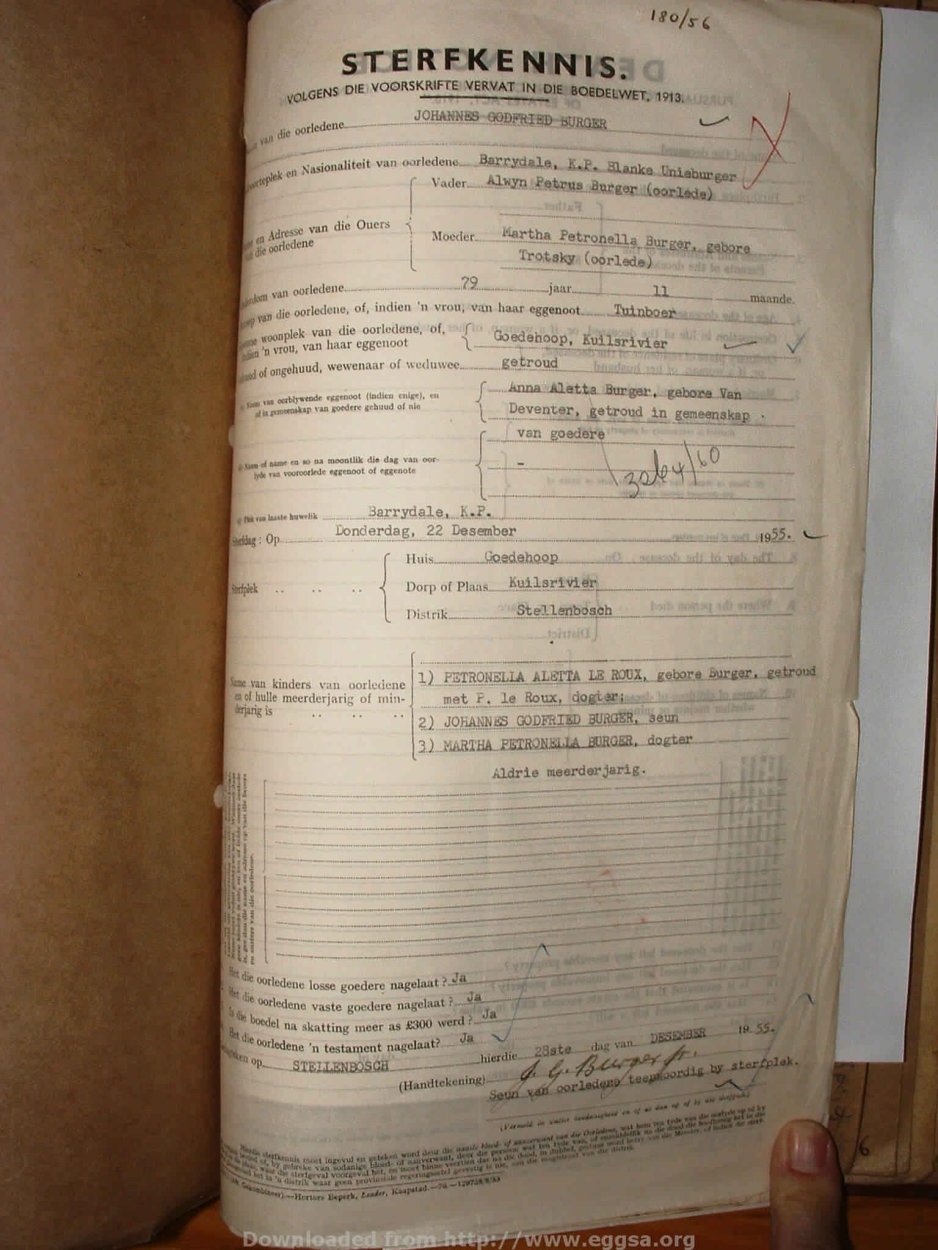 180/56
STERFKENNIS.
VOLGENS DIE VOORSKRIFTE VERVAT IN DIE BOEDELWET, 1913.
van die oorledene JOHANNES GODFRIED BURGER
en Nasionaliteit van oorledene Barrydale, K.P. Blanke Unieburger
Vader Alwyn Petrus Burger (oorlede)
en Adresse van die Ouers
die oorledene
Moeder Martha Petronella Burger, gebore
Trotsky (oorlede)
van oorledene 79 jaar 11 maande.
van die oorledene, of, indien 'n vrou, van haar eggenoot Tuinboer
woonplek van die oorledene, of,
'n vrou, van haar eggenoot
Goedehoop, Kuilsrivier
of ongehuud, wewenaar of weduwee getroud
Naam van oorblywende eggenoot (indien enige), en
of in gemeenskap van goedere gehuud of nie
Anna Aletta Burger, gebore Van
Deventer, getroud in gemeenskap
van goedere
of name en so na moontlik die dag van oor-
lyde van vooroorlede eggenoot of eggenote
-
Plek van laaste huwelik Barrydale, K.P.
Sterfdag : Op Donderdag, 22 Desember 1955.
Sterfplek
Huis Goedehoop
Dorp of Plaas Kuilsrivier
Distrik Stellenbosch
Name van kinders van oorledene
en of hulle meerderjarig of min-
derjarig is
1) PETRONELLA ALETTA LE ROUX, gebore Burger, getroud
met P. le Roux, dogter;
2) JOHANNES GODFRIED BURGER, seun
3) MARTHA PETRONELLA BURGER, dogter
Aldrie meerderjarig.
Het die oorledene losse goedere nagelaat ? Ja
Het die oorledene vaste goedere nagelaat ? Ja
Is die boedel na skatting meer as £300 werd ? Ja
Het die oorledene 'n testament nagelaat? Ja
op STELLENBOSCH hierdie 28ste dag van DESEMBER 19 55.
(Handtekening) J. G. Burger jr.
Seun van oorledene teenwoordig by sterfplek.
Horters Beperk, Kaapstad.
Downloaded from http://www.eggsa.org